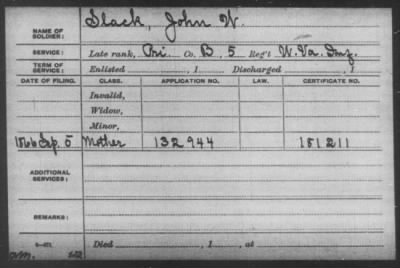 NAME OF SOLDIER: Slack, John W.
SERVICE: Late rank, Pri. Co. B, 5 Reg't W. Va. Inf.
TERM OF SERVICE: Enlisted , 1 Discharged , 1
DATE OF FILING. CLASS. APPLICATION NO. LAW. CERTIFICATE NO.
Invalid,
Widow,
Minor,
1866 Sep. 5 Mother 132 944 151 211
ADDITIONAL SERVICES:
REMARKS:
Died , 1 , at